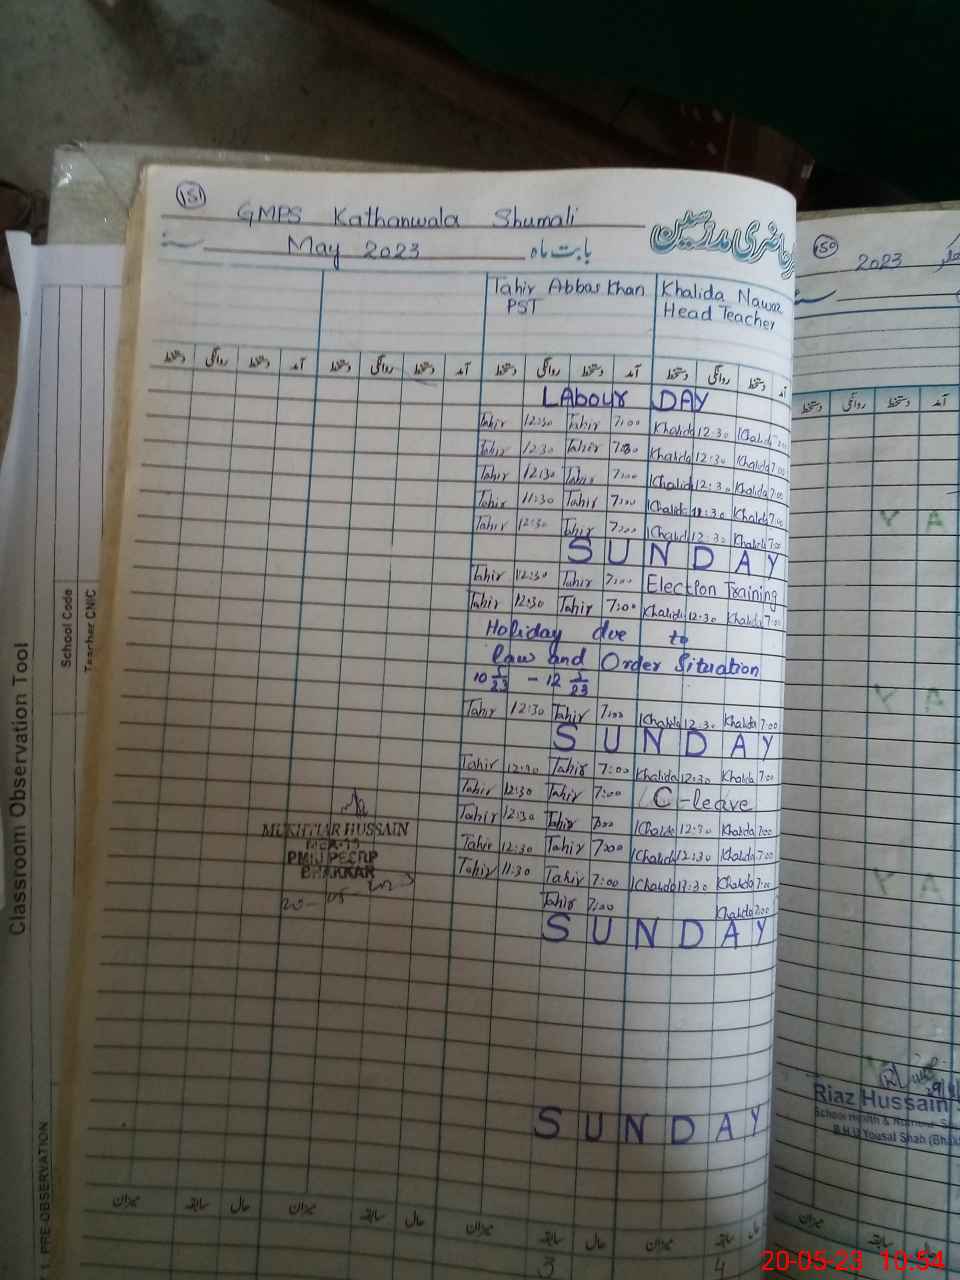 151
GMPS Kathanwala Shumali
حاضری مدرسین
May 2023 بابت ماہ
Tahir Abbas Khan Khalida Nawaz
PST Head Teacher
دستخط روانگی دستخط آمد دستخط روانگی دستخط آمد دستخط روانگی دستخط آمد دستخط روانگی دستخط آمد
LAbour DAY
Tahir 12:30 Tahir 7:00 Khalida 12:30 Khalida 7:00
Tahir 12:30 Tahir 7:00 Khalida 12:30 Khalida 7:00
Tahir 12:30 Tahir 7:00 Khalida 12:30 Khalida 7:00
Tahir 11:30 Tahir 7:00 Khalida Khalida 7:00
Tahir 12:30 Tahir 7:00 Khalida 12:30 Khalida 7:00
SUNDAY
Tahir 12:30 Tahir 7:00 Election Training
Tahir 12:30 Tahir 7:00 Khalida 12:30 Khalida 7:00
Holiday due to
law and Order Situation
10 5/23 - 12 5/23
Tahir 12:30 Tahir 7:00 Khalida 12:30 Khalida 7:00
SUNDAY
Tahir 12:30 Tahir 7:00 Khalida 12:30 Khalida 7:00
Tahir 12:30 Tahir 7:00 C-leave
Tahir 12:30 Tahir 7:00 Khalida 12:30 Khalida 7:00
Tahir 12:30 Tahir 7:00 Khalida 12:30 Khalida 7:00
Tahir 11:30 Tahir 7:00 Khalida Khalida 7:00
Tahir 7:00 Khalida 7:00
SUNDAY
MUKHTIAR HUSSAIN
PMIU PESRP
BHAKKAR
20-05-2023
SUNDAY
میزان سابقہ حال میزان سابقہ حال میزان سابقہ حال میزان سابقہ حال
3 4
150
2023
دستخط روانگی دستخط آمد
Y A
Y A
Y A
Riaz Hussain
School Health & Nutrition
B.H.U Yousaf Shah
میزان سابقہ حال
Classroom Observation Tool
School Code
Teacher CNIC
1. PRE OBSERVATION
20-05-23 10:54